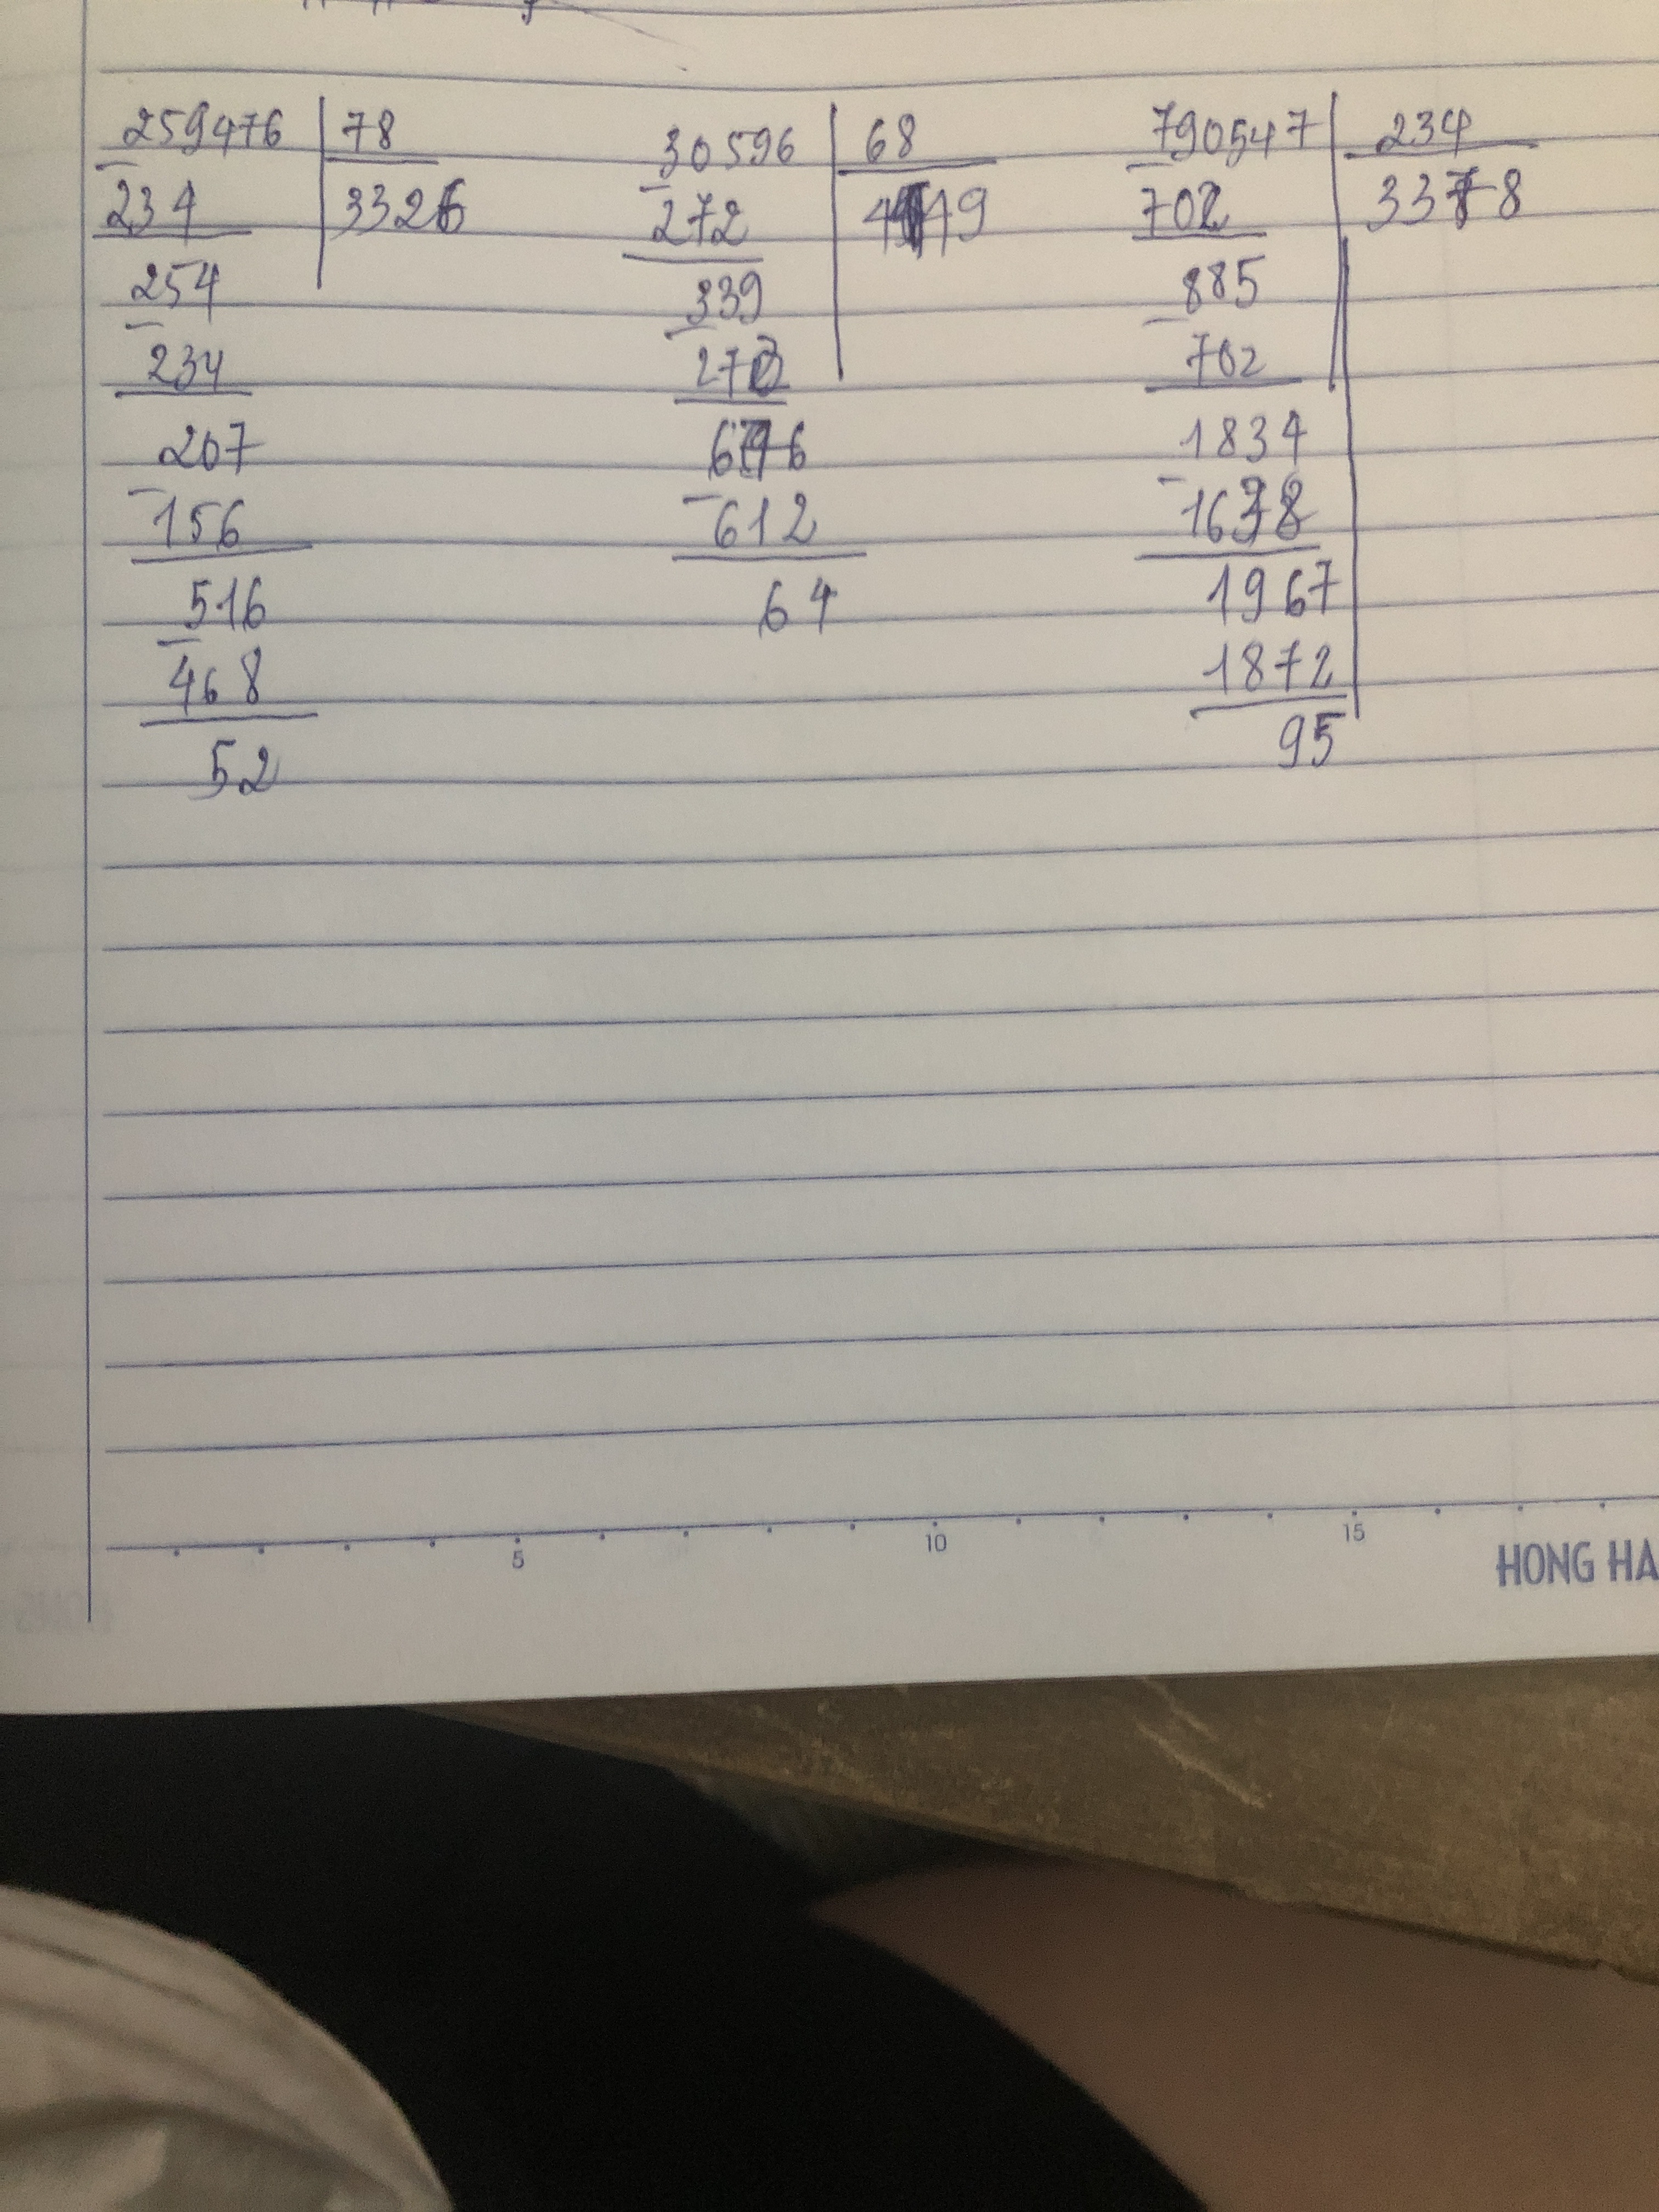 259476 78
234 3326
254
234
207
156
516
468
52
30596 68
272 449
339
272
676
612
64
790547 234
702 3378
885
702
1834
1638
1967
1872
95
5 10 15
HONG HA